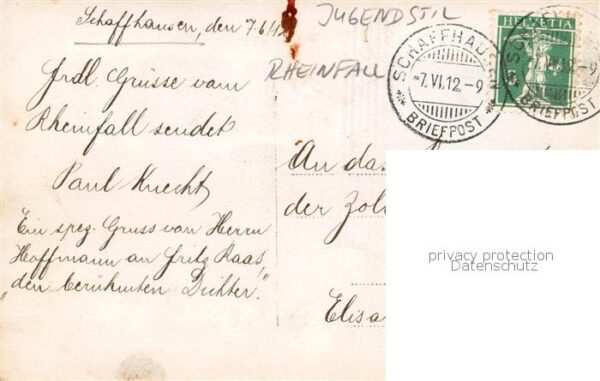 Schaffhausen, den 7.6.12
JUGENDSTIL
RHEINFALL
HELVETIA
SCHAFFHAUSEN
-7.VI.12.-9
BRIEFPOST
SCHAFFHAUSEN
VI.12.-9
BRIEFPOST
Frdl. Grüsse vom
Rheinfall sendet
Paul Knecht
Ein spez. Gruss von Herrn
Hoffmann an Fritz Kaas,
"den berühmten Dichter."
An das
der Zoll
Elisa
privacy protection
Datenschutz